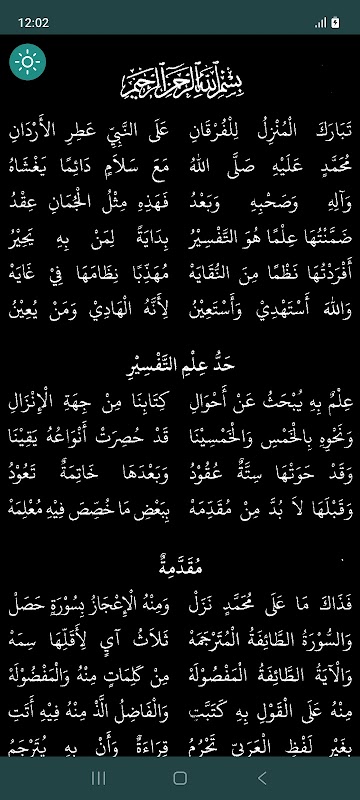 12:02
بِسْمِ اللهِ الرَّحْمَنِ الرَّحِيمِ
تَبَارَكَ الْمُنْزِلُ لِلْفُرْقَانِ عَلَى النَّبِيِّ عَطِرِ الأَرْدَانِ
مُحَمَّدٍ عَلَيْهِ صَلَّى اللهُ مَعَ سَلاَمٍ دَائِمًا يَغْشَاهُ
وَآلِهِ وَصَحْبِهِ وَبَعْدُ فَهَذِهِ مِثْلُ الْجُمَانِ عِقْدُ
ضَمَّنْتُهَا عِلْمًا هُوَ التَّفْسِيْرُ بِدَايَةً لِمَنْ بِهِ يَحِيْرُ
أَفْرَدْتُهَا نَظْمًا مِنَ النُّقَايَهْ مُهَذِّبًا نِظَامَهَا فِيْ غَايَهْ
وَاللهَ أَسْتَهْدِيْ وَأَسْتَعِيْنُ لِأَنَّهُ الْهَادِيْ وَمَنْ يُعِيْنُ
حَدُّ عِلْمِ التَّفْسِيْرِ
عِلْمٌ بِهِ يُبْحَثُ عَنْ أَحْوَالِ كِتَابِنَا مِنْ جِهَةِ الْإِنْزَالِ
وَنَحْوِهِ بِالْخَمْسِ وَالْخَمْسِيْنَا قَدْ حُصِرَتْ أَنْوَاعُهُ يَقِيْنَا
وَقَدْ حَوَتْهَا سِتَّةٌ عُقُوْدُ وَبَعْدَهَا خَاتِمَةٌ تَعُوْدُ
وَقَبْلَهَا لاَ بُدَّ مِنْ مُقَدِّمَهْ بِبَعْضِ مَا خُصِّصَ فِيْهِ مُعْلِمَهْ
مُقَدِّمَةٌ
فَذَاكَ مَا عَلَى مُحَمَّدٍ نَزَلْ وَمِنْهُ الْإِعْجَازُ بِسُوْرَةٍ حَصَلْ
وَالسُّوْرَةُ الطَّائِفَةُ الْمُتَرْجَمَهْ ثَلاَثُ آيٍ لِأَقَلِّهَا سِمَهْ
وَالْآيَةُ الطَّائِفَةُ الْمَفْصُوْلَهْ مِنْ كَلِمَاتٍ مِنْهُ وَالْمَفْضُوْلَهْ
مِنْهُ عَلَى الْقَوْلِ بِهِ كَتَبَّتِ وَالْفَاضِلُ الَّذْ مِنْهُ فِيْهِ أَتَتِ
بِغَيْرِ لَفْظِ الْعَرَبِيِّ تَحْرُمُ قِرَاءَةٌ وَأَنْ بِهِ يُتَرْجَمُ